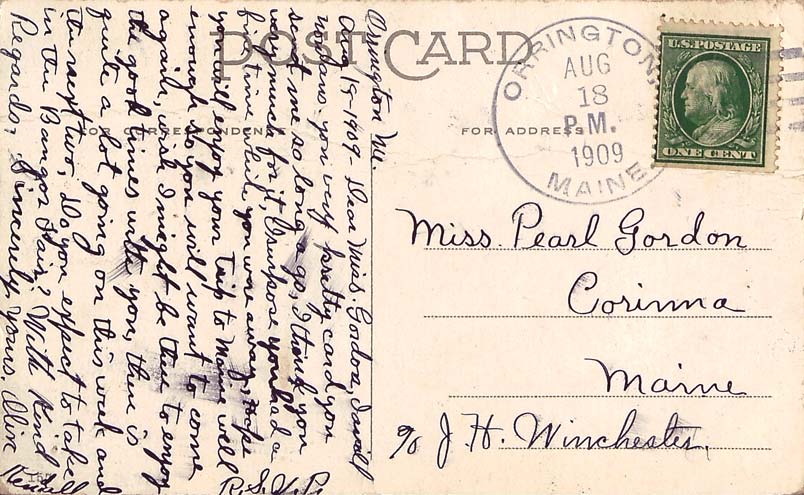 POST CARD
FOR CORRESPONDENCE
FOR ADDRESS
ORRINGTON,
AUG
18
P.M.
1909
MAINE
U.S. POSTAGE
ONE CENT
Miss. Pearl Gordon
Corinna
Maine
c/o J. H. Winchester.
Orrington Me.
Aug 19-1909- Dear Miss. Gordon, I will
you very pretty card you
sent me so long a go, I thank you
very much for it, I surpose you had a
fine time while you were away, Hope
you will enjoy your trip to Maine well
enough so you will want to come
again, wish I might be there to enjoy
the good times with you, there is
quite a lot going on this week and
the next two, Do you expect to take
in the Bangor Fair? With Kind
Regards, Sincerely yours. Olive
Kendall
R.S.V.P.